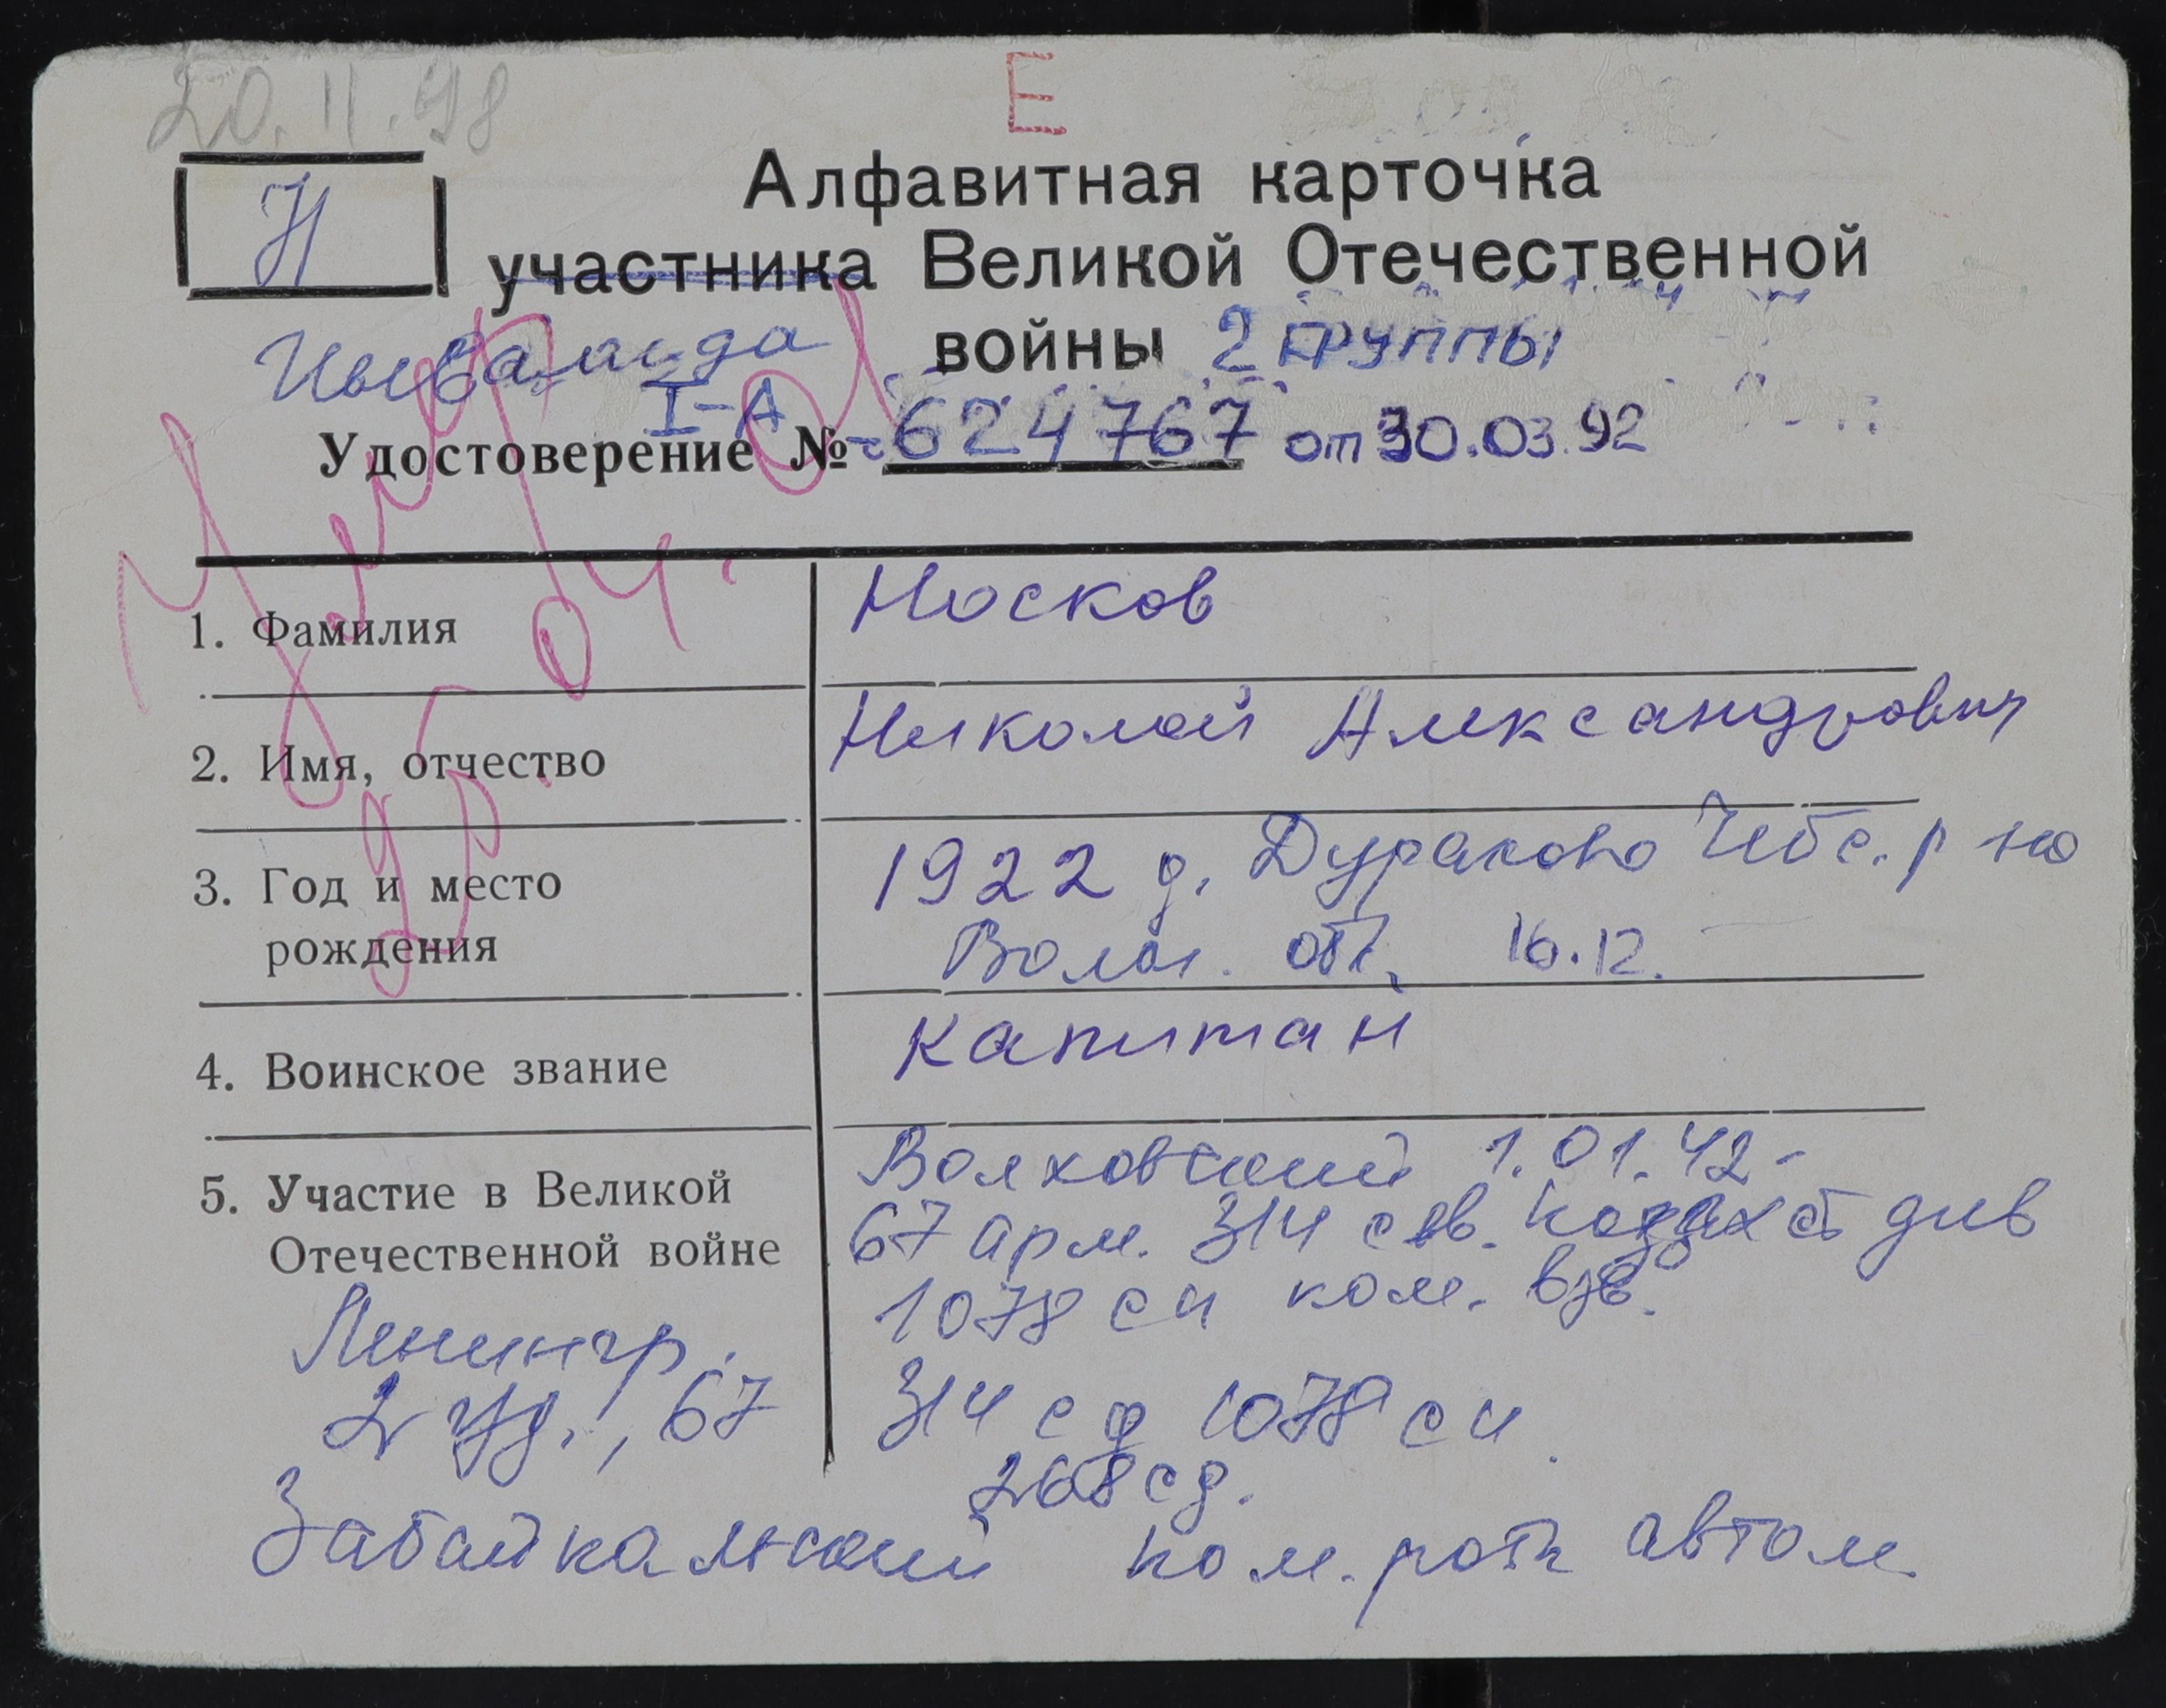 20.11.98
Е
Н
Алфавитная карточка
участника Великой Отечественной
Инвалида войны 2 группы
I-А
Удостоверение № 624767 от 30.03.92
Умер
1. Фамилия Носков
2. Имя, отчество Николай Александрович
3. Год и место 1922 д. Дураково Чебс. р-на
рождения Волог. обл. 16.12.
4. Воинское звание капитан
Волховский 1.01.42-
5. Участие в Великой 67 арм. 314 див
Отечественной войне 1078 сп ком. взв.
Ленингр.
2 уд., 67 314 сд 1078 сп
268 сд.
Забайкальский ком. роты автом